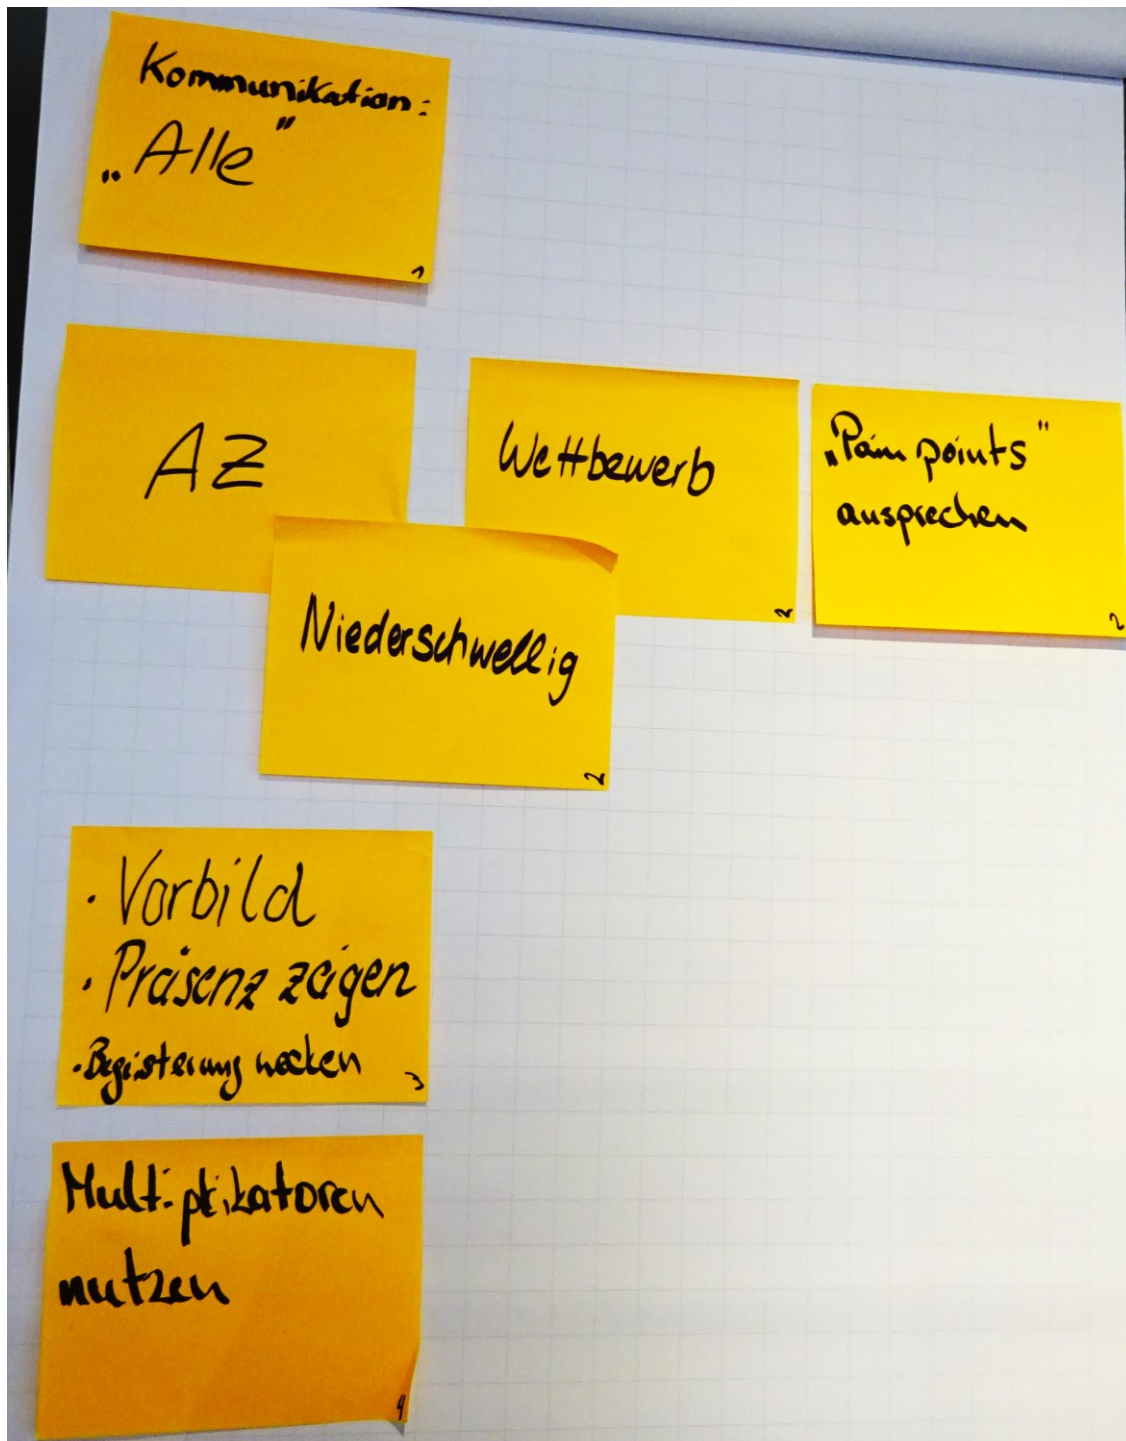 Kommunikation:
„Alle"
1
AZ
Wettbewerb
2
„Pain points"
ausprechen
2
Niederschwellig
2
· Vorbild
· Präsenz zeigen
· Begisterung wecken
3
Multiplikatoren
nutzen
4